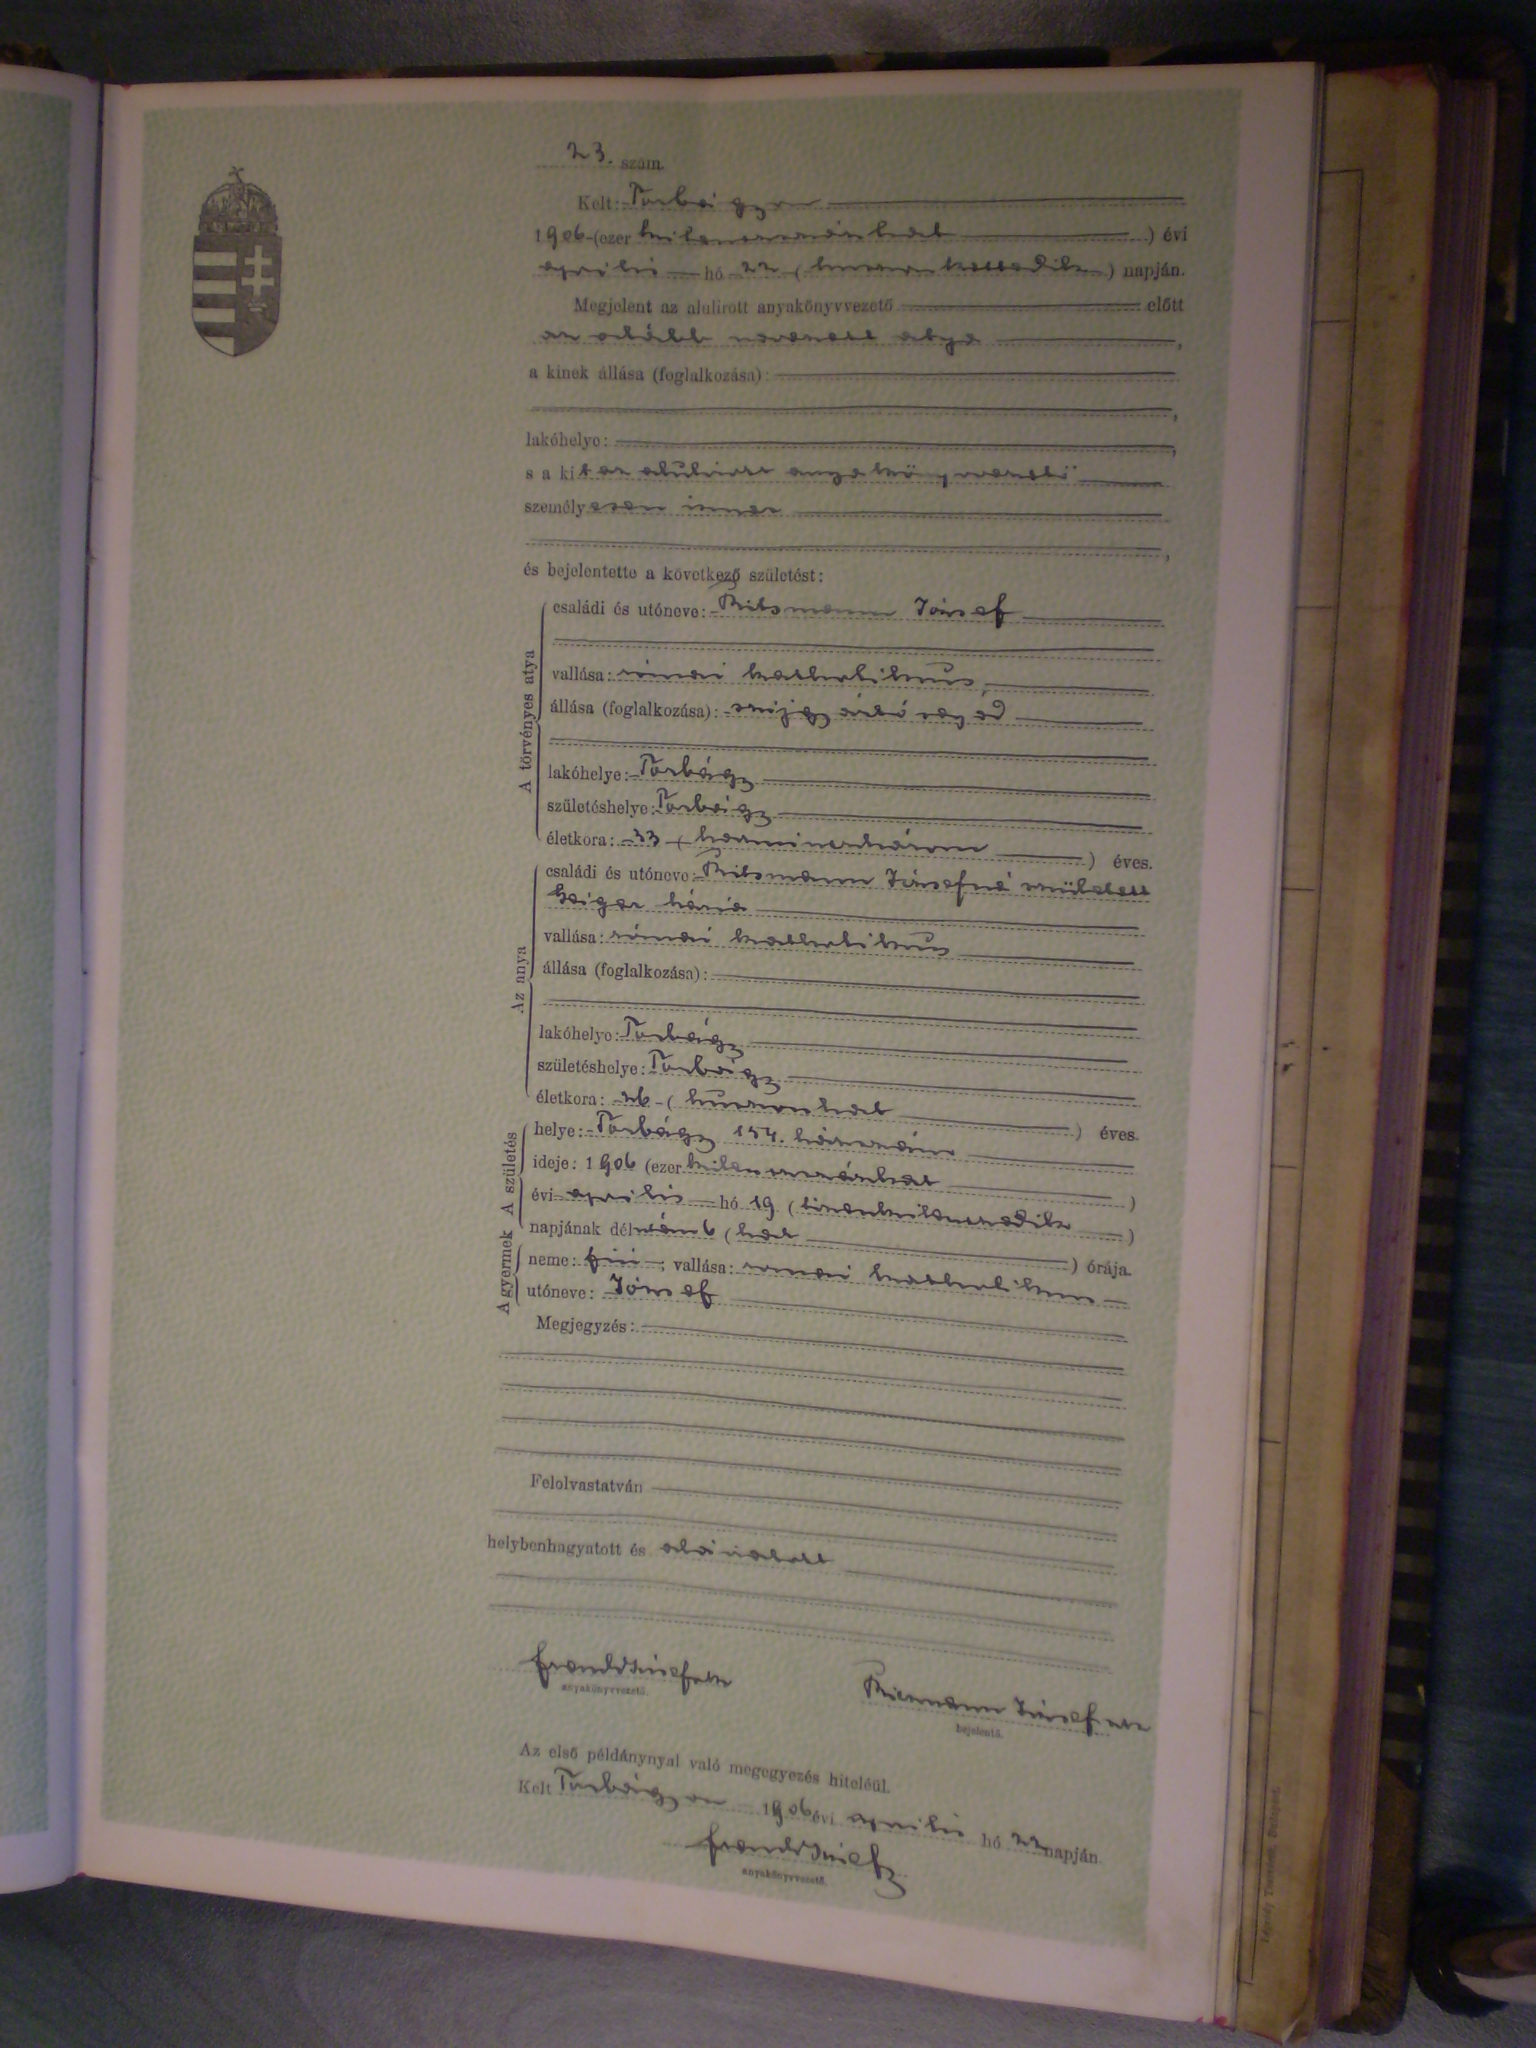 23. szám.
Kelt: Torbágyon
1906 (ezer kilenczszázhat) évi
április hó 22 (huszonkettedik) napján.
Megjelent az alulirott anyakönyvvezető előtt
az alább nevezett atya,
a kinek állása (foglalkozása):
lakóhelye:
s a kit az alulirott anyakönyvvezető
személyesen ismer
és bejelentette a következő születést:
A törvényes atya
családi és utóneve: József
vallása: római katholikus
állása (foglalkozása):
lakóhelye: Torbágy
születéshelye: Torbágy
életkora: 33 (harminczhárom) éves.
Az anya
családi és utóneve: Józsefné született
vallása: római katholikus
állása (foglalkozása):
lakóhelye: Torbágy
születéshelye: Torbágy
életkora: 26 (huszonhat) éves.
A születés
helye: Torbágy 154. házszám
ideje: 1906 (ezer kilenczszázhat)
évi április hó 19 (tizenkilenczedik)
napjának délután 6 (hat) órája.
A gyermek
neme: fiú; vallása: római katholikus
utóneve: József
Megjegyzés:
Felolvastatván
helybenhagyatott és aláiratott
anyakönyvvezető.
József
bejelentő.
Az első példánynyal való megegyezés hiteléül.
Kelt Torbágyon 1906 évi április hó 22 napján
anyakönyvvezető.